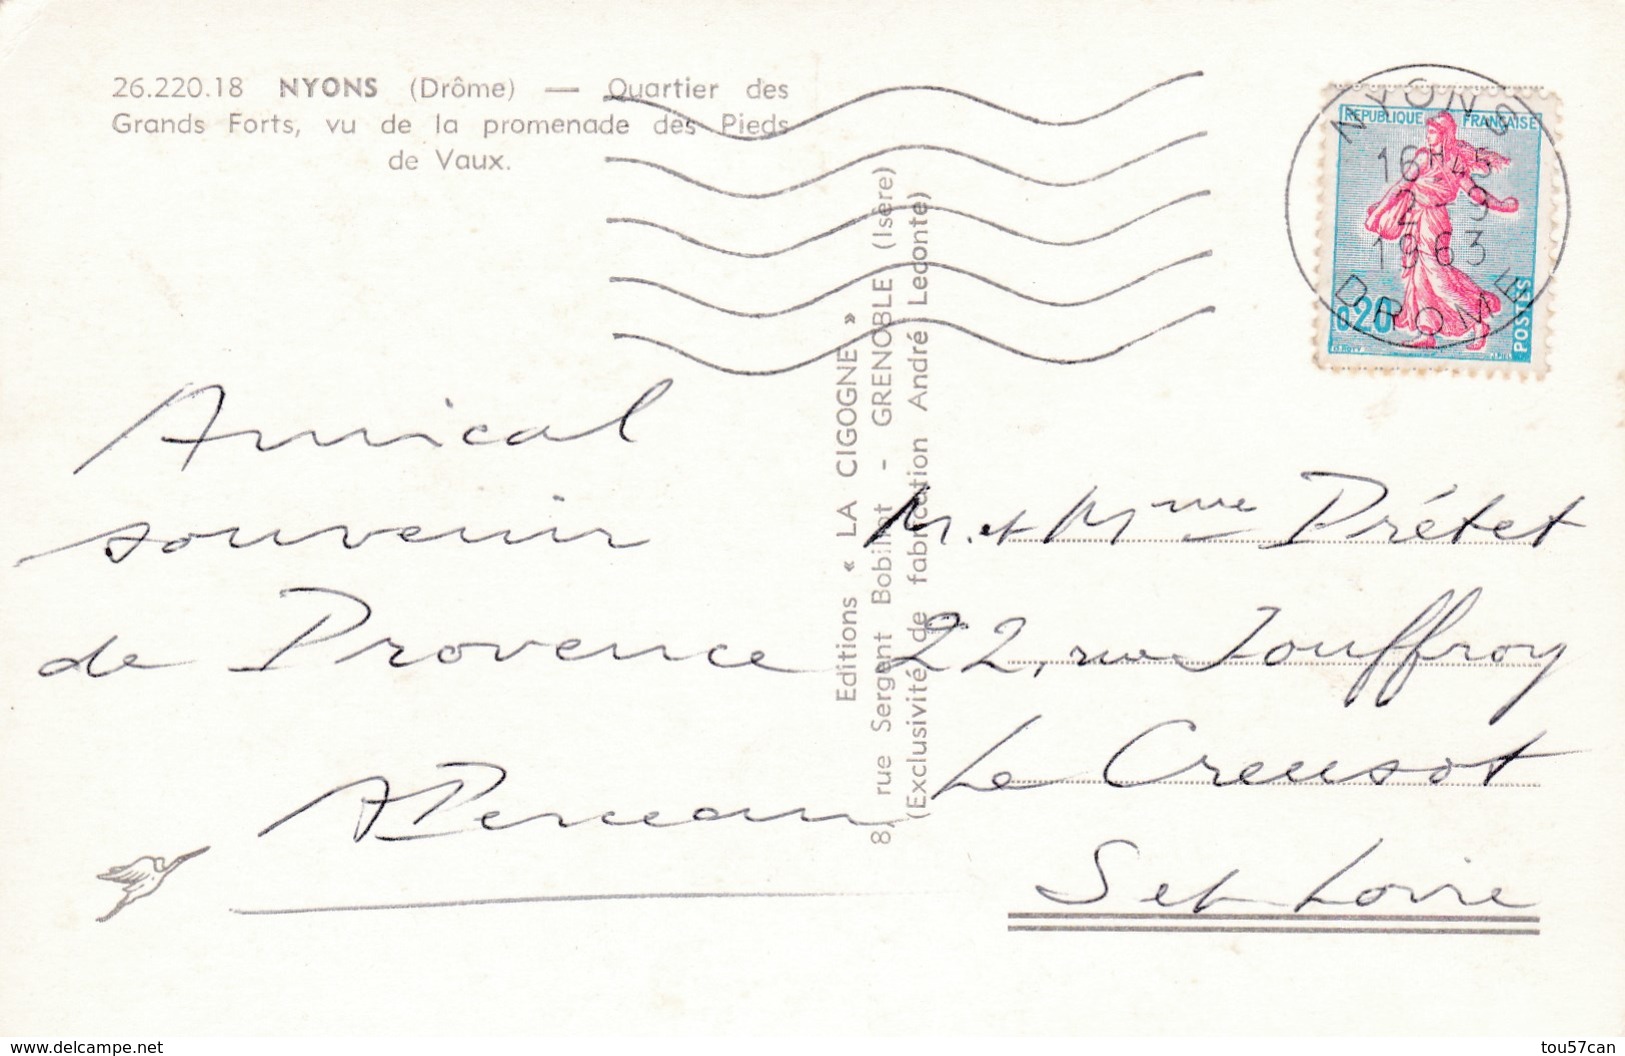 26.220.18 NYONS (Drôme) — Quartier des
Grands Forts, vu de la promenade des Pieds
de Vaux.
NYONS
16H45
2-9
1963
DROME
REPUBLIQUE FRANÇAISE
0,20
POSTES
Amical
souvenir
de Provence
Editions « LA CIGOGNE »
8, rue Sergent Bobillot - GRENOBLE (Isère)
(Exclusivité de fabrication André Leconte)
M. et Mme Prétet
22, rue Jouffroy
Le Creusot
S et Loire
www.delcampe.net
tou57can